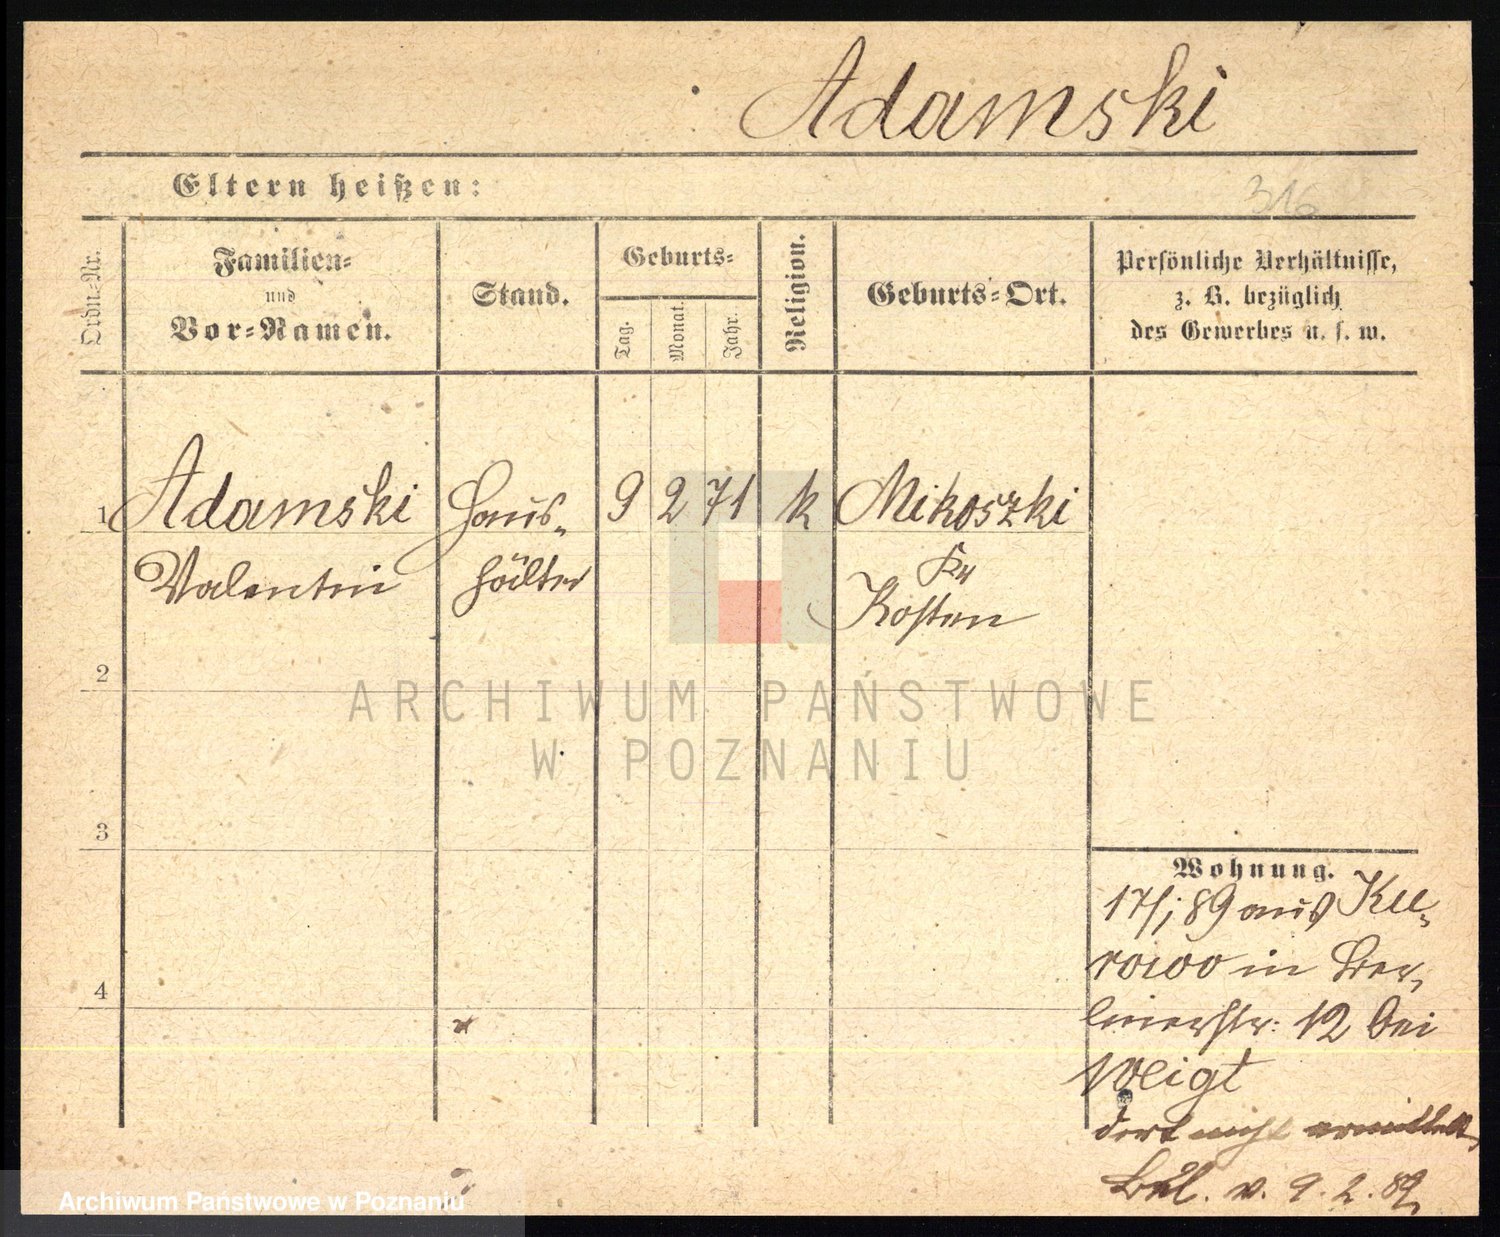 Adamski
Eltern heißen:
316
Ordn.-Nr.
Familien-
und
Vor-Namen.
Stand.
Geburts-
Tag.
Monat.
Jahr.
Religion.
Geburts-Ort.
Persönliche Verhältnisse,
z. B. bezüglich
des Gewerbes u. s. w.
1 Adamski Haus- 9 2 71 k Mikoszki
Valentin hälter Kr
Kosten
2
3
4
Wohnung.
17/1 89 aus Ku-
rowo in Ber-
linerstr. 12 bei
Weigt
dort nicht ermittelt,
v. 9.2.89
ARCHIWUM PAŃSTWOWE
W POZNANIU
Archiwum Państwowe w Poznaniu